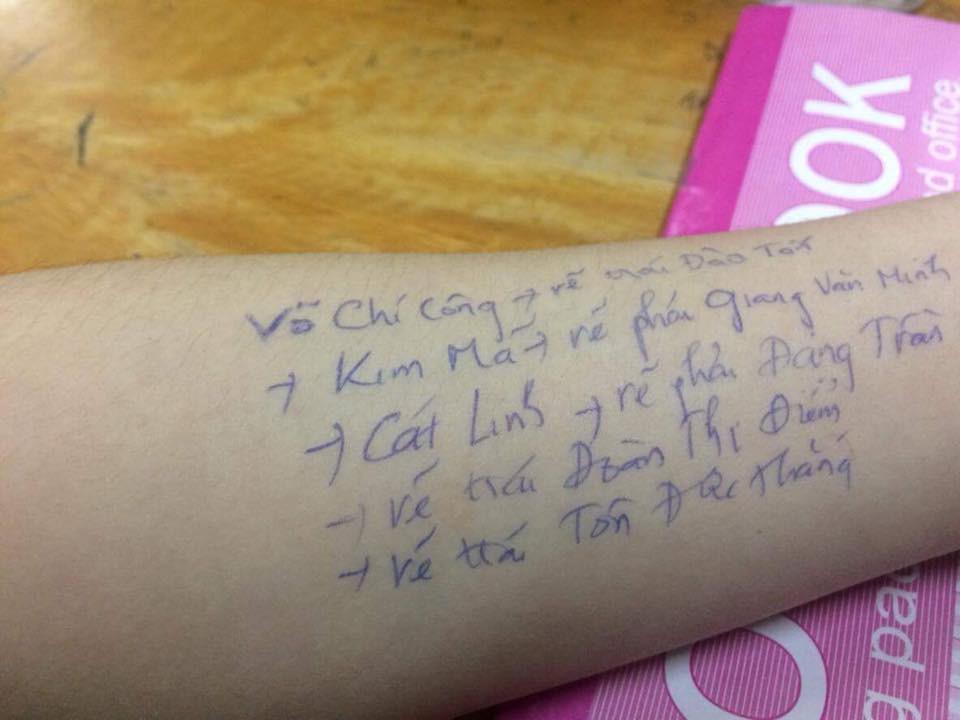 OOK
rd office
Võ Chí Công → rẽ trái Đào Tấn
→ Kim Mã → rẽ phải Giang Văn Minh
→ Cát Linh → rẽ phải Đặng Trần
→ rẽ trái Đoàn Thị Điểm
→ rẽ trái Tôn Đức Thắng
O
g pa